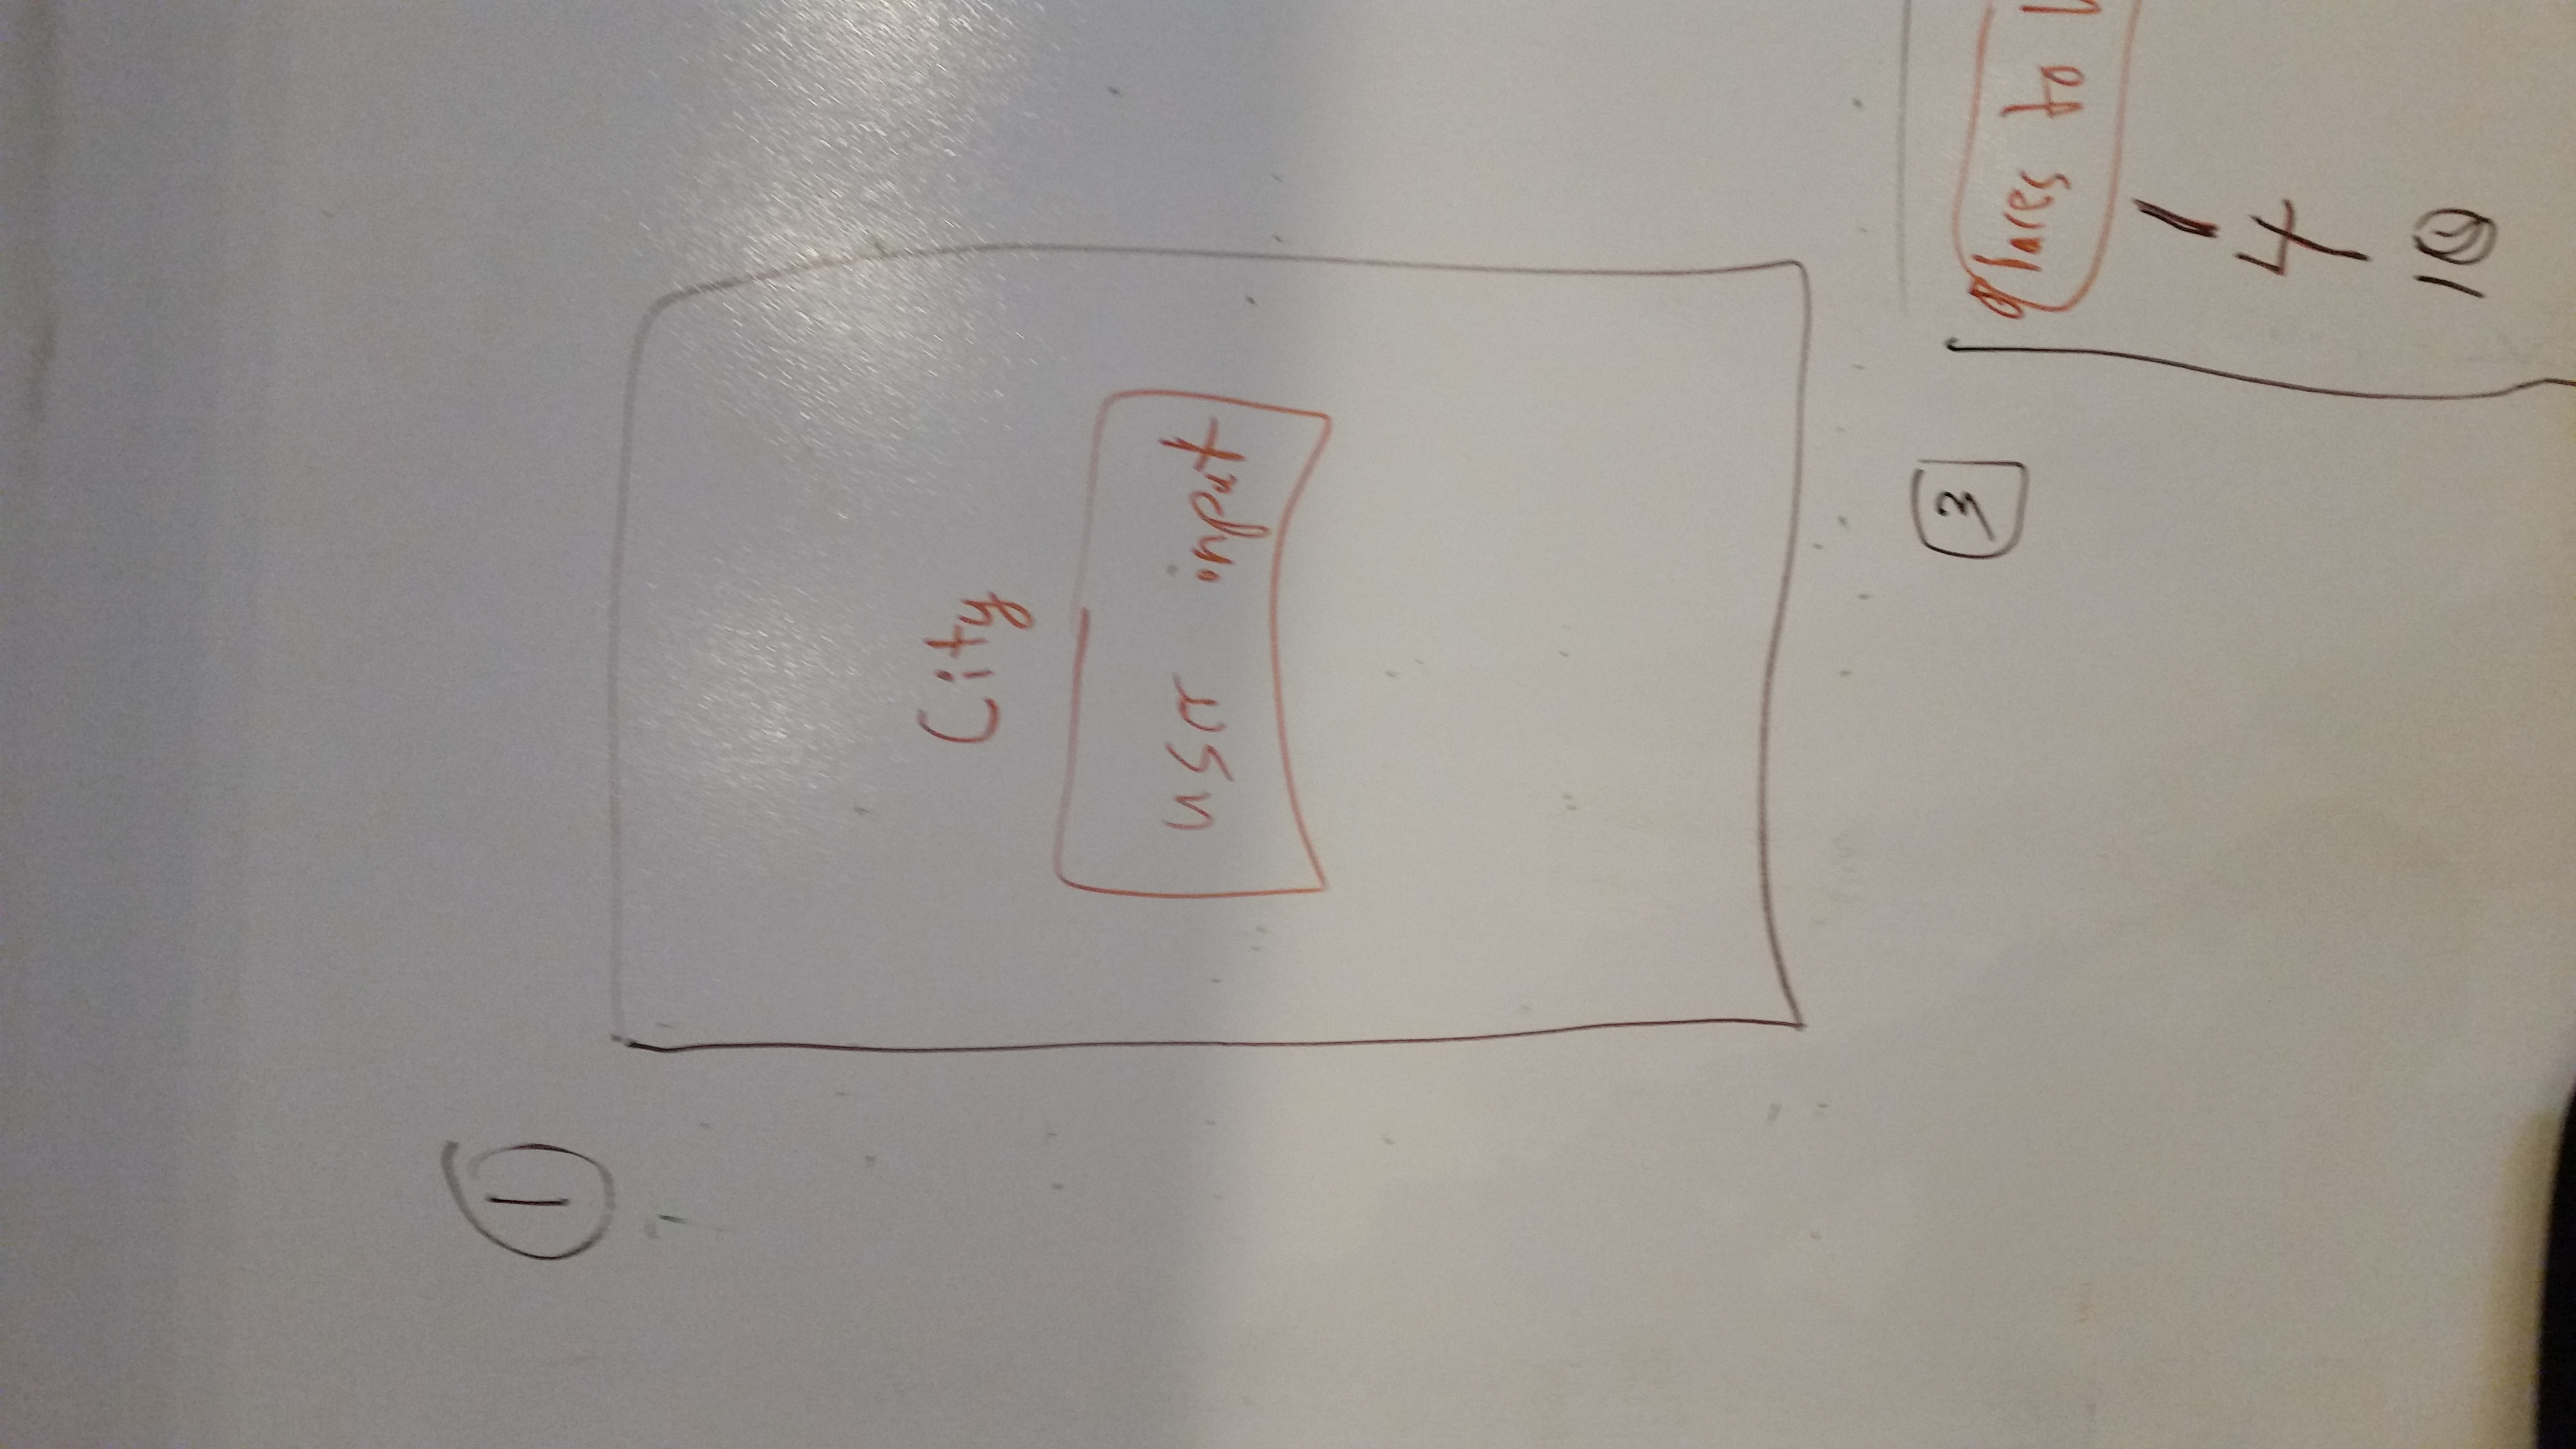 1
City
user input
3
Places to
1
4
10